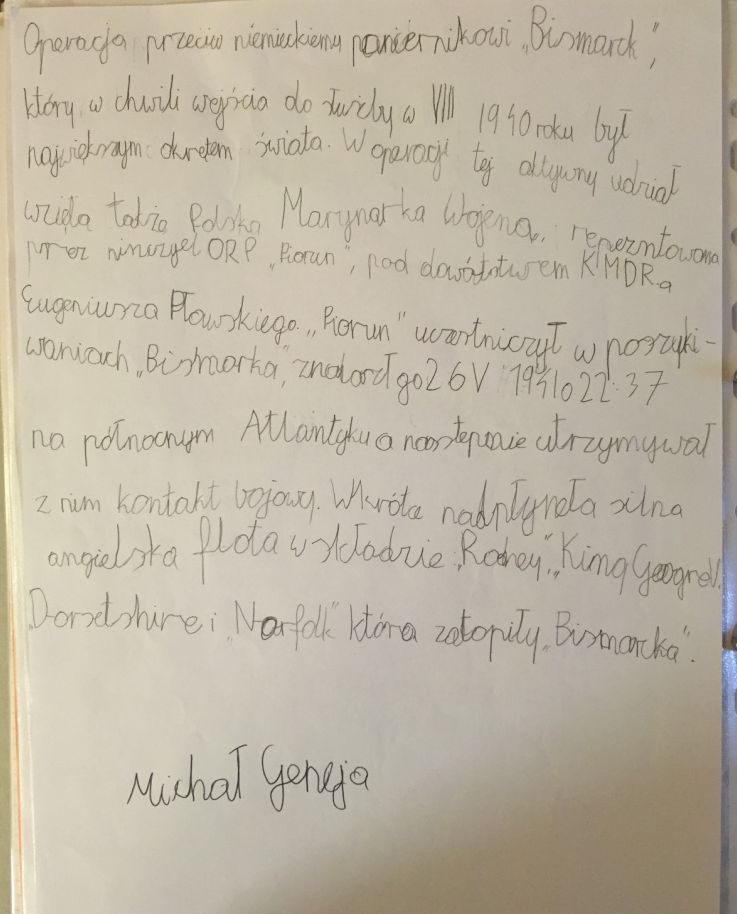 Operacja przeciw niemieckiemu pancernikowi „Bismarck",
który w chwili wejścia do służby w VIII 1940 roku był
największym okrętem świata. W operacji tej aktywny udział
wzięła także Polska Marynarka Wojena, reperzntowana
przez niszczyel ORP „Piorun", pod dowództwem KMDR.a
Eugeniusza Pławskiego. „Piorun" uczestniczył w poszuki-
waniach „Bismarka", znalazł go 26 V 1941 o 22:37
na północnym Atlantyku a następnie utrzymywał
z nim kontakt bojowy. Wkrótce nadpłynęła silna
angielska flota w składzie „Rodney", „King George V.
„Dorsetshire i „Norfolk" które zatopiły „Bismarcka".
Michał Geneja